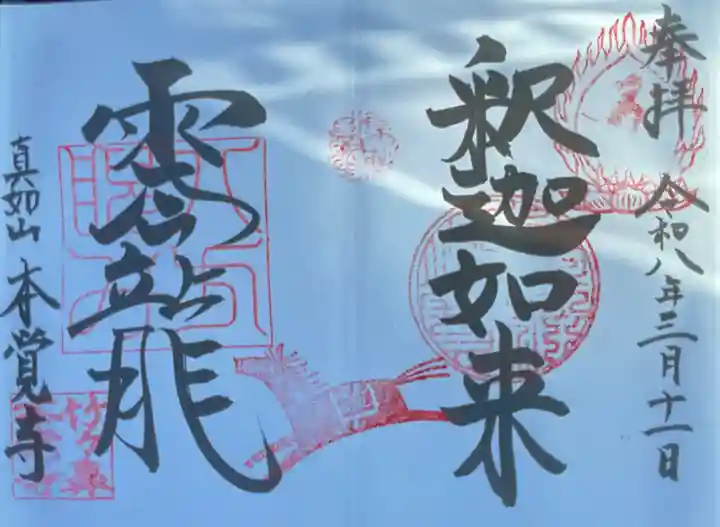 奉拝 令和八年三月十一日
釈迦如来
龍
真如山 本覺寺